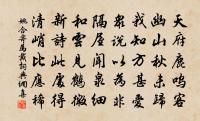 天府鹿鳴客
幽山秋未歸
我知方甚愛
衆說以為非
隔屋聞泉細
和雲見鶴微
新詩此處得
清峭比應稀
姚合寄馬戴詞典網書